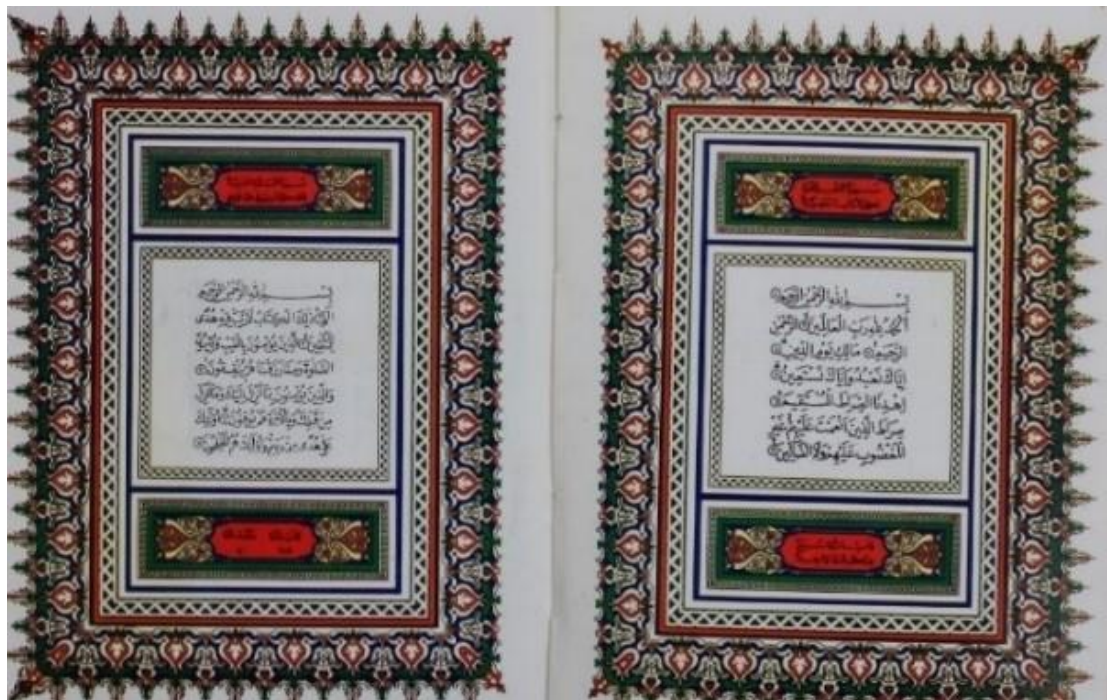 بسم الله الرحمن الرحيم
الحمد لله رب العالمين الرحمن
الرحيم مالك يوم الدين
إياك نعبد وإياك نستعين
اهدنا الصراط المستقيم
صراط الذين أنعمت عليهم غير
المغضوب عليهم ولا الضالين
بسم الله الرحمن الرحيم
الم ذلك الكتاب لا ريب فيه هدى
للمتقين الذين يؤمنون بالغيب ويقيمون
الصلوة ومما رزقناهم ينفقون
والذين يؤمنون بما أنزل إليك وما أنزل
من قبلك وبالآخرة هم يوقنون أولئك
على هدى من ربهم وأولئك هم المفلحون